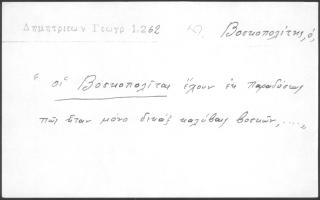 Δημητριεων Γεωγρ 1.262 Βοσκοπολίτης, ὁ,
"οἱ Βοσκοπολῖται ἔχουν ἐκ παραδόσεως
πῶς ἦταν μόνο δικαὲξ καλύβαι βοσκῶν, ....,"